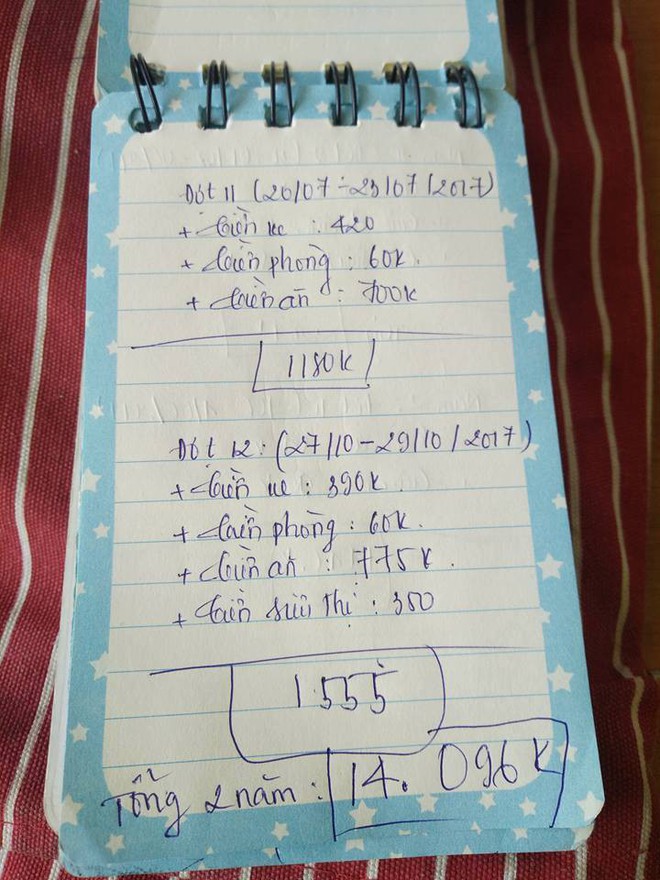 Đợt 11 (20/07 ÷ 23/07/2017)
+ tiền xe : 420
+ tiền phòng : 60k.
+ tiền ăn : 700k
1180k
Đợt 12 : (27/10 - 29/10/2017)
+ tiền xe : 390k.
+ tiền phòng : 60k.
+ tiền ăn : 775k.
+ tiền siêu thị : 350
1.555
Tổng 2 năm : 14.096k